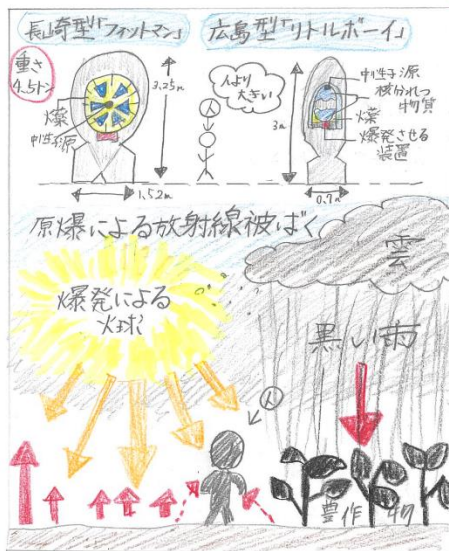 長崎型「ファットマン」
広島型「リトルボーイ」
重さ
4.5トン
3.25m
火薬
中性子源
1.52m
人より
大きい
人
3m
中性子源
核分れつ
物質
火薬
爆発させる
装置
0.7m
原爆による放射線被ばく
爆発による
火球
雲
黒い雨
人
農作物